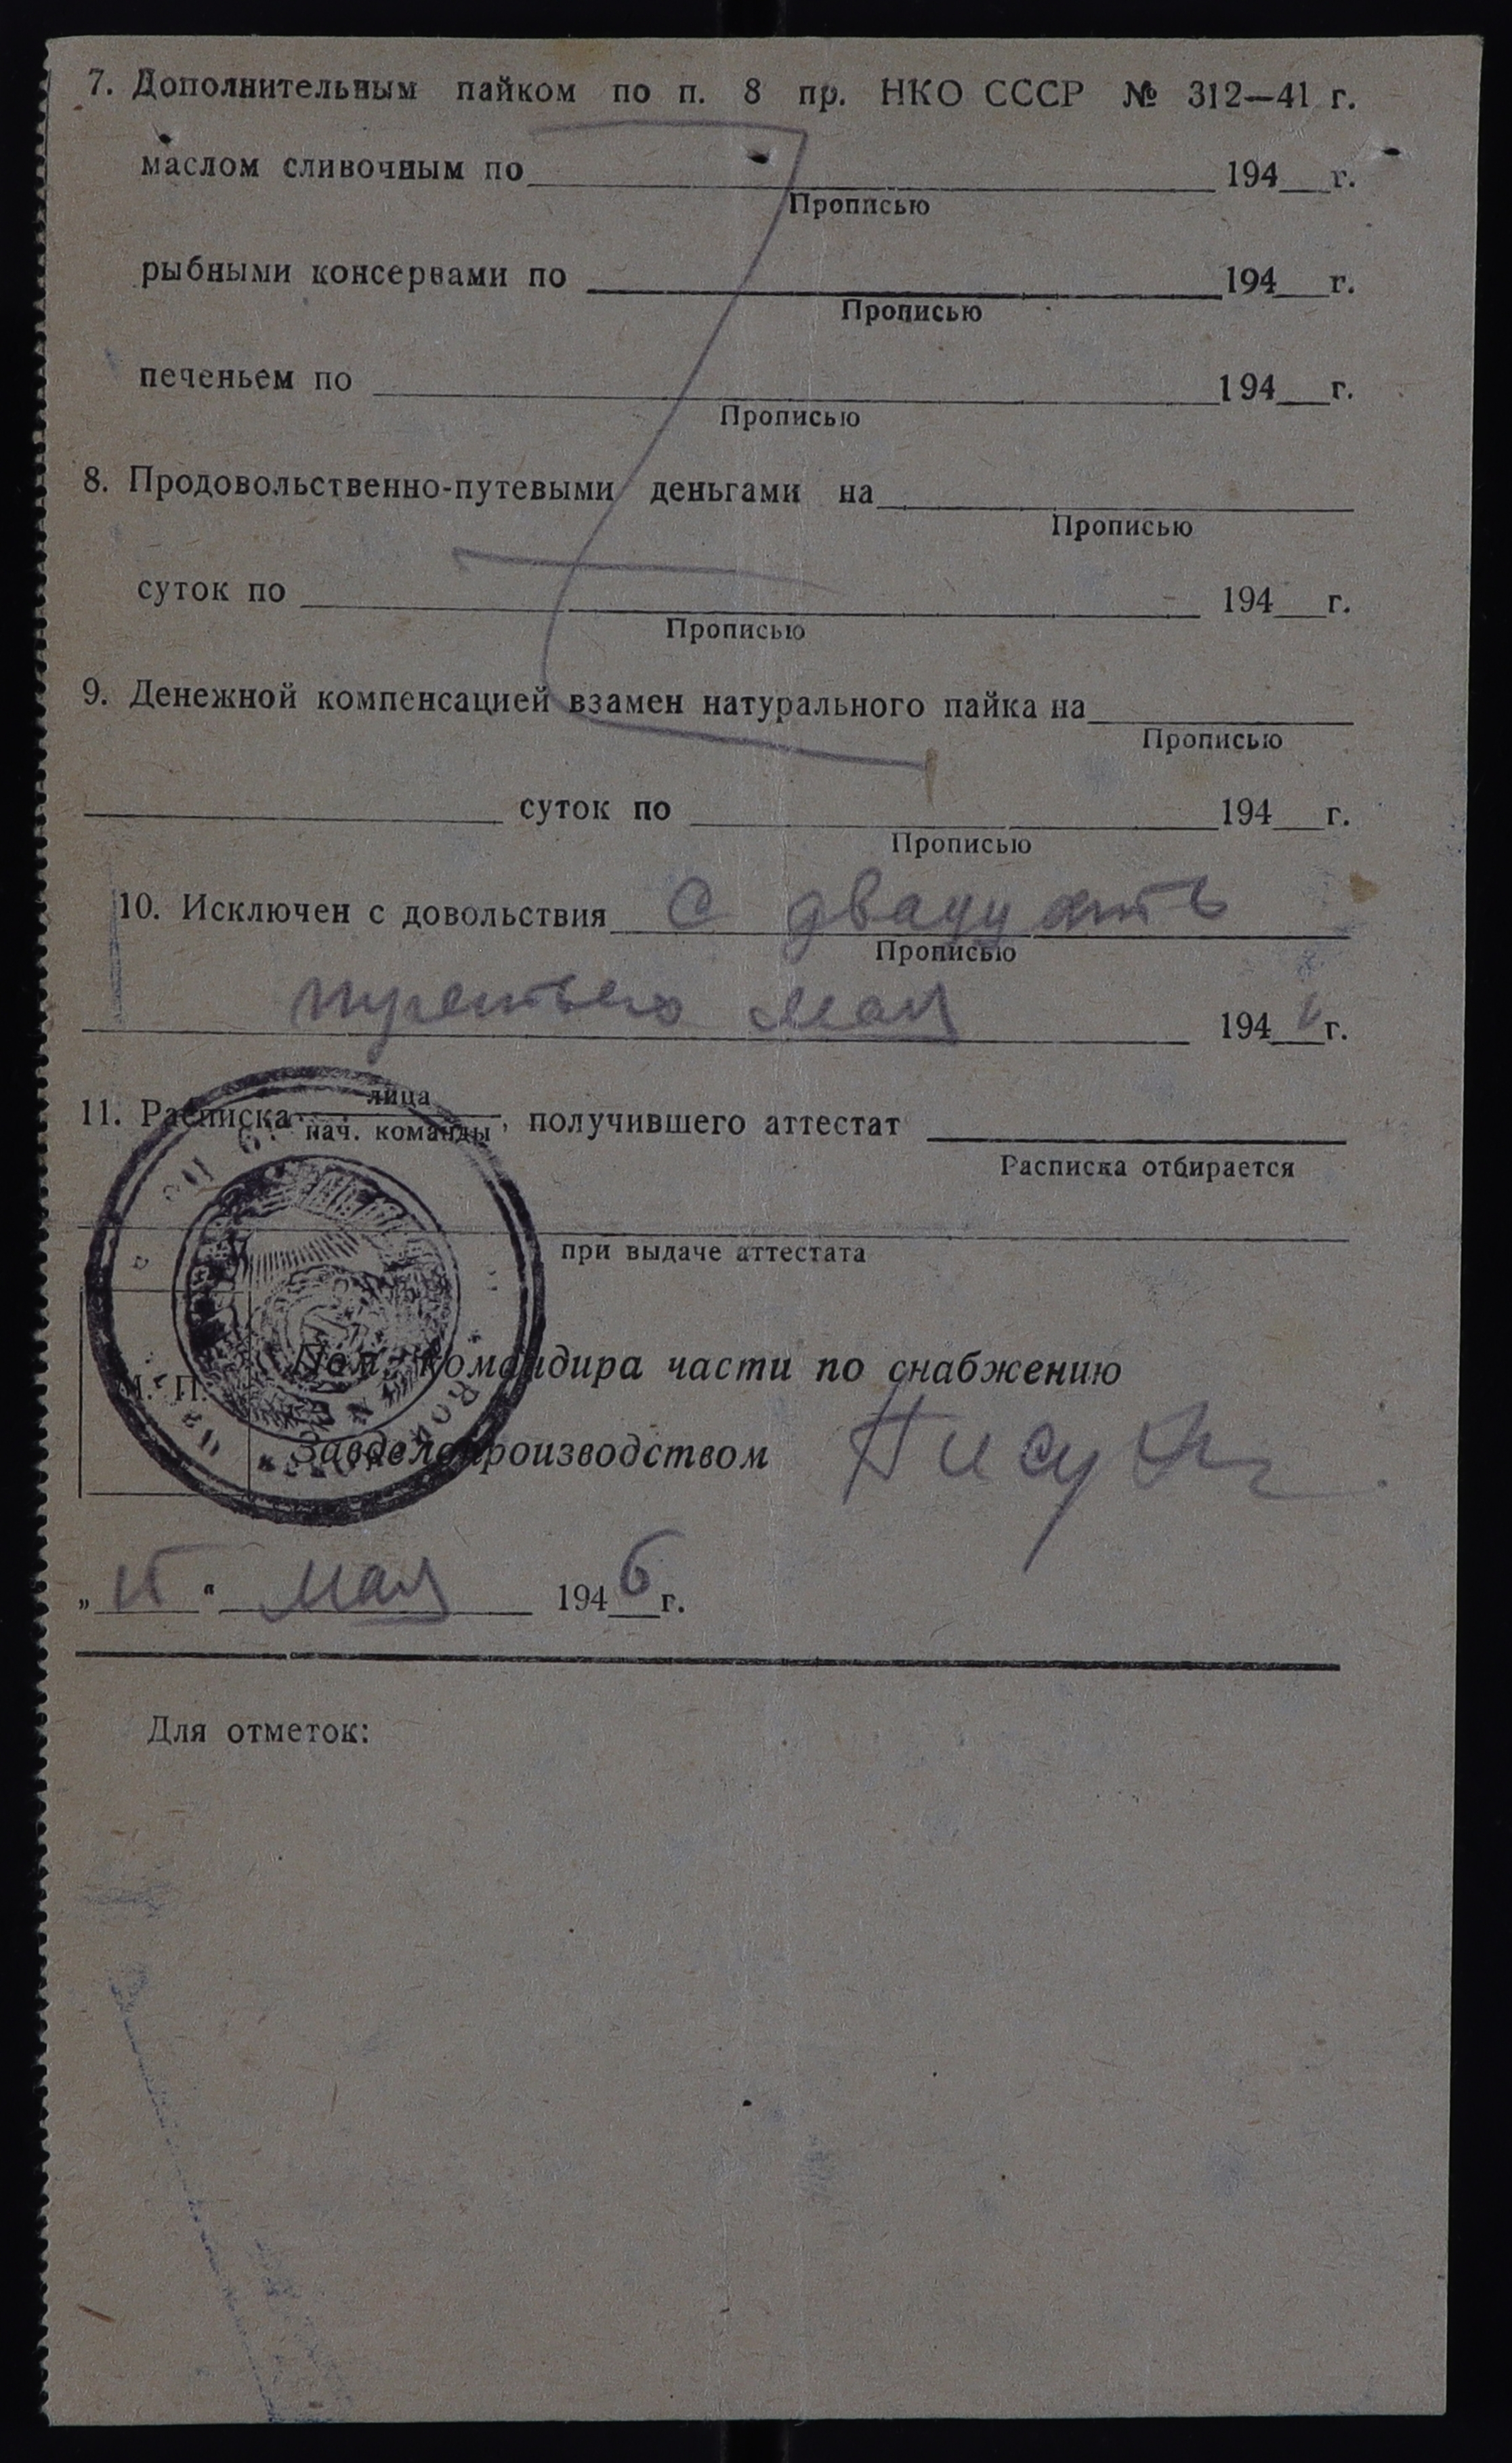 7. Дополнительным пайком по п. 8 пр. НКО СССР № 312—41 г.
маслом сливочным по 194 г.
Прописью
рыбными консервами по 194 г.
Прописью
печеньем по 194 г.
Прописью
8. Продовольственно-путевыми деньгами на
Прописью
суток по 194 г.
Прописью
9. Денежной компенсацией взамен натурального пайка на
Прописью
суток по 194 г.
Прописью
10. Исключен с довольствия с двадцать
Прописью
третьего мая 194 г.
11. Расписка лица
нач. команды, получившего аттестат
Расписка отбирается
при выдаче аттестата
Пом. командира части по снабжению
М. П.
Завделопроизводством
" " мая 1946 г.
Для отметок: